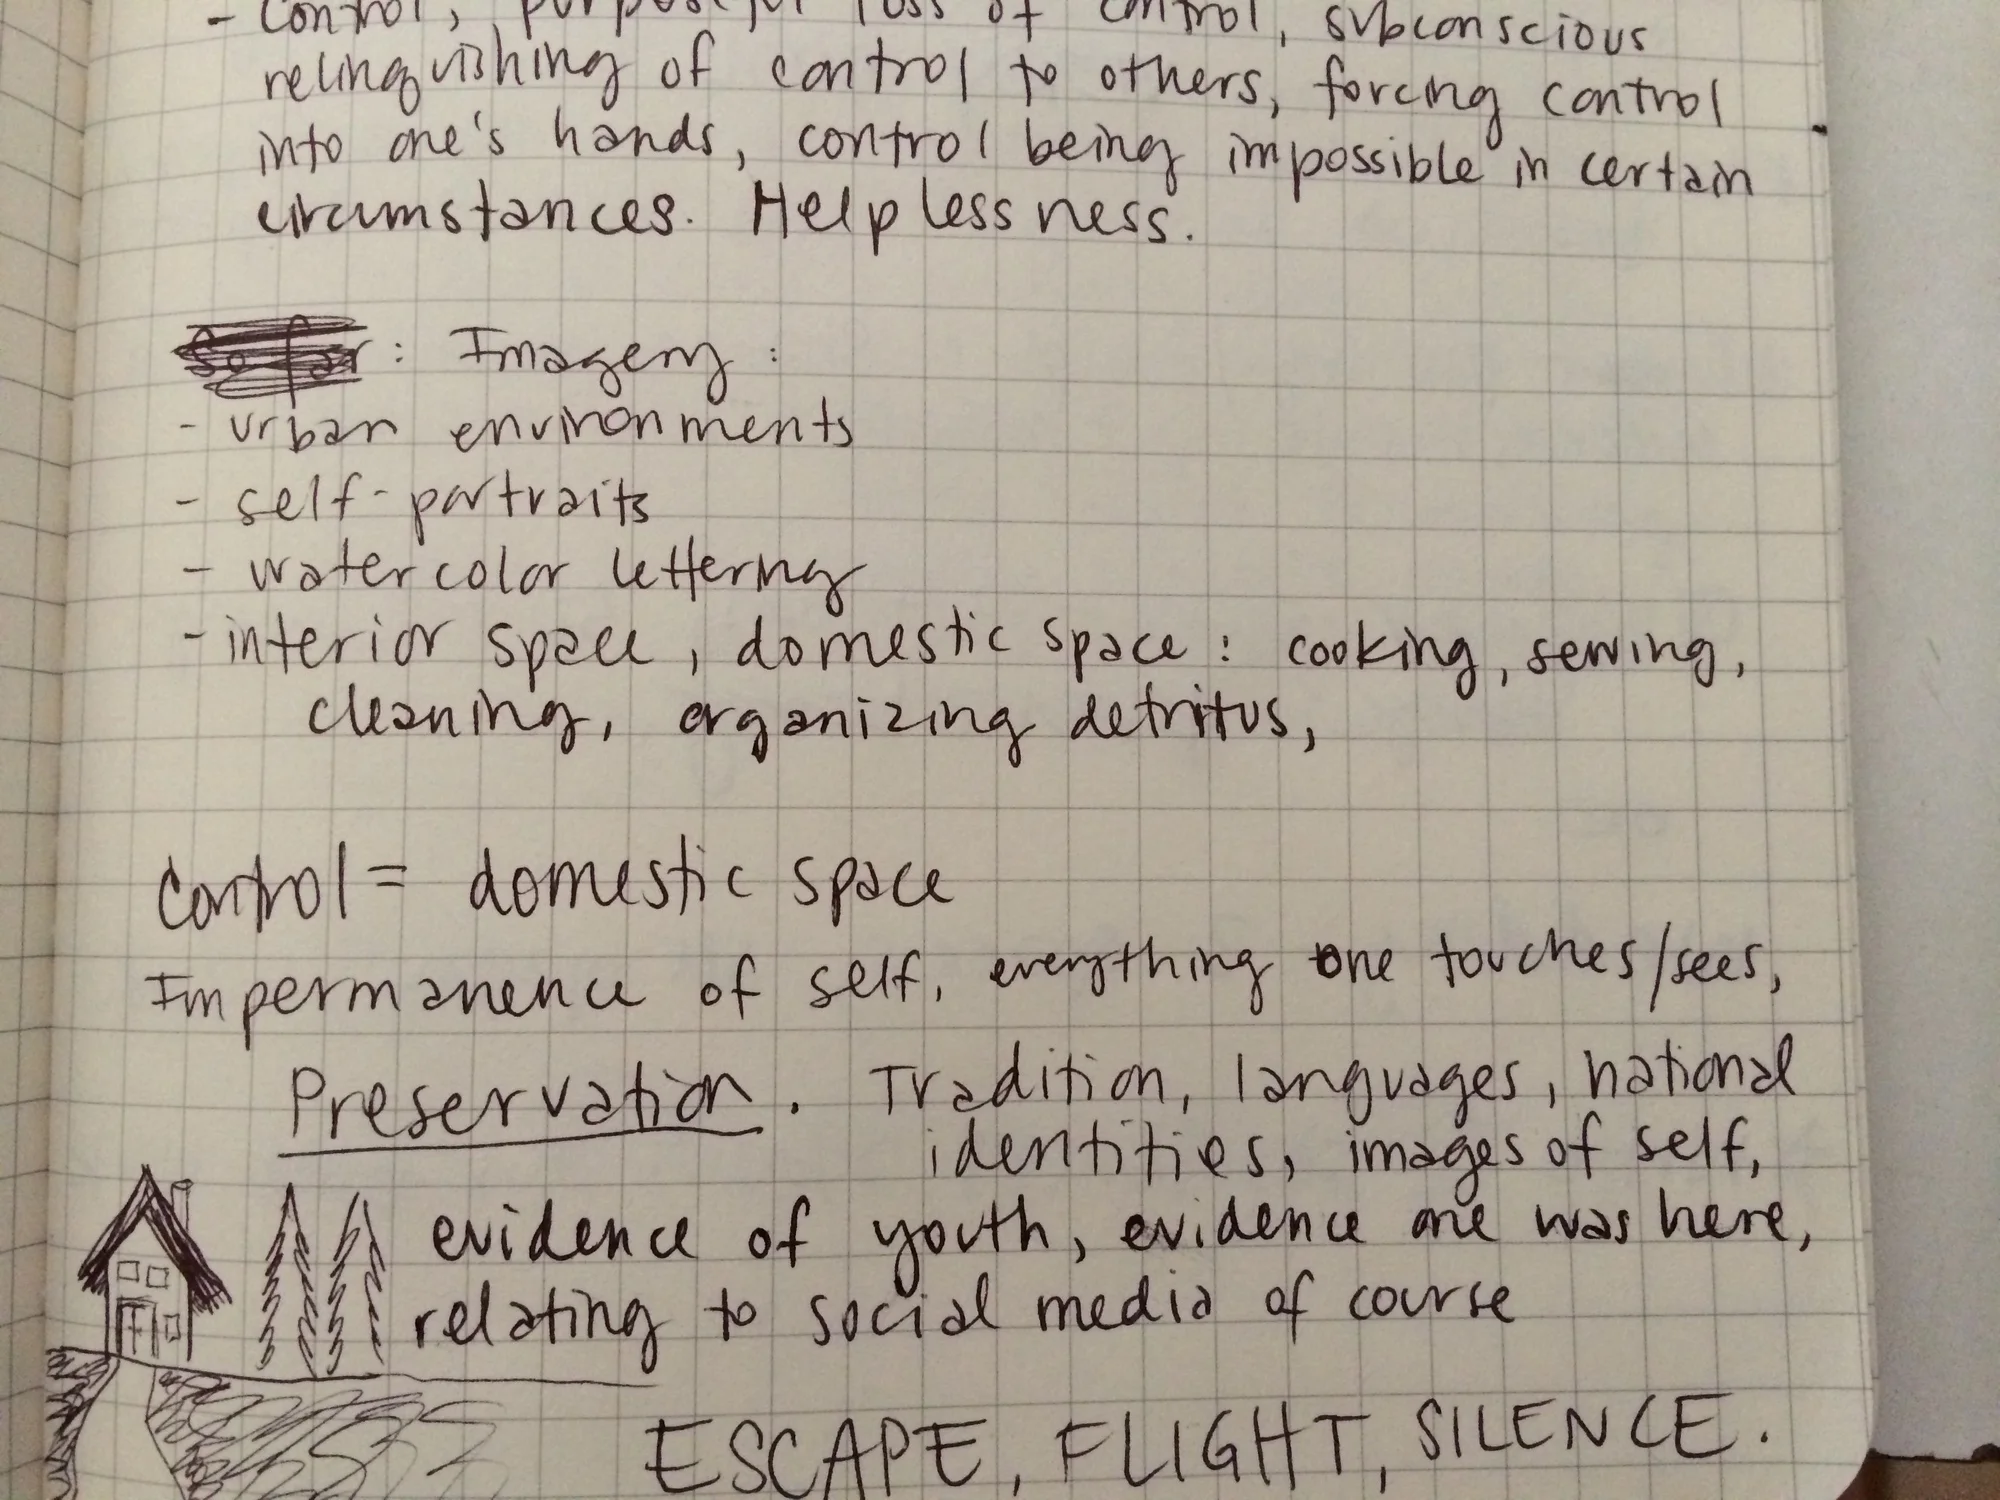 - Control, purposeful loss of control, subconscious
relinquishing of control to others, forcing control
into one's hands, control being impossible in certain
circumstances. Helplessness.
So far: Imagery:
- urban environments
- self-portraits
- watercolor lettering
- interior space, domestic space: cooking, sewing,
cleaning, organizing detritus,
Control = domestic space
Impermanence of self, everything one touches/sees,
Preservation. Tradition, languages, national
identities, images of self,
evidence of youth, evidence one was here,
relating to social media of course
ESCAPE, FLIGHT, SILENCE.